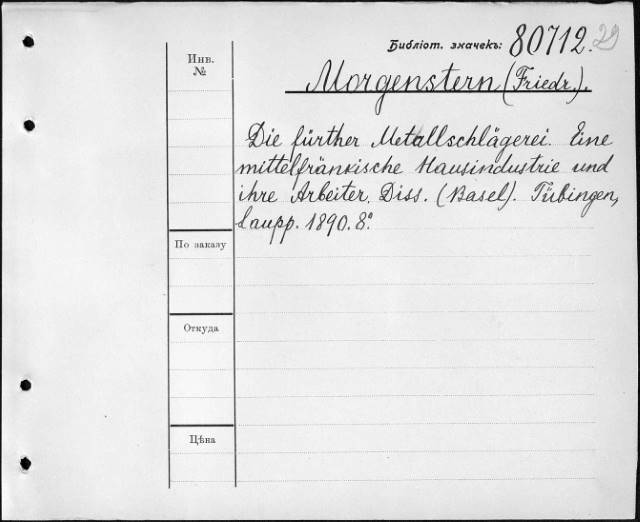 Библіот. значекъ: 80712. 29
Инв.
№
Morgenstern (Friedr.).
Die fürther Metallschlägerei. Eine
mittelfränkische Hausindustrie und
ihre Arbeiter. Diss. (Basel). Tübingen,
Laupp. 1890. 8º.
По заказу
Откуда
Цѣна